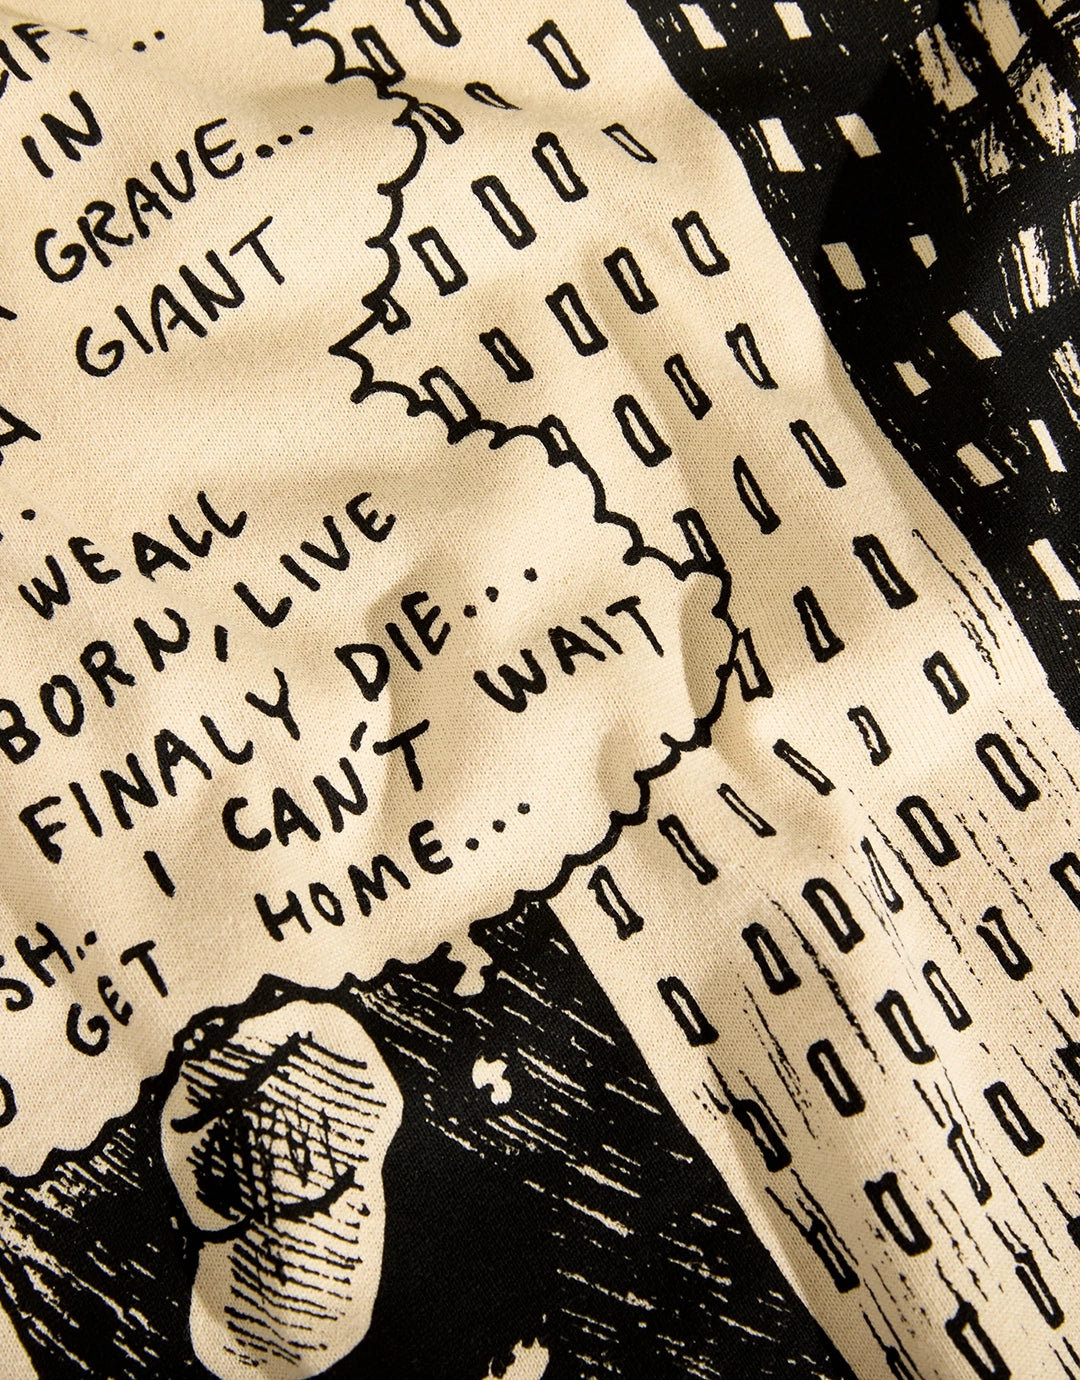 IN
GRAVE...
GIANT
WE ALL
BORN, LIVE
FINALY DIE...
I CAN'T WAIT
GET HOME...